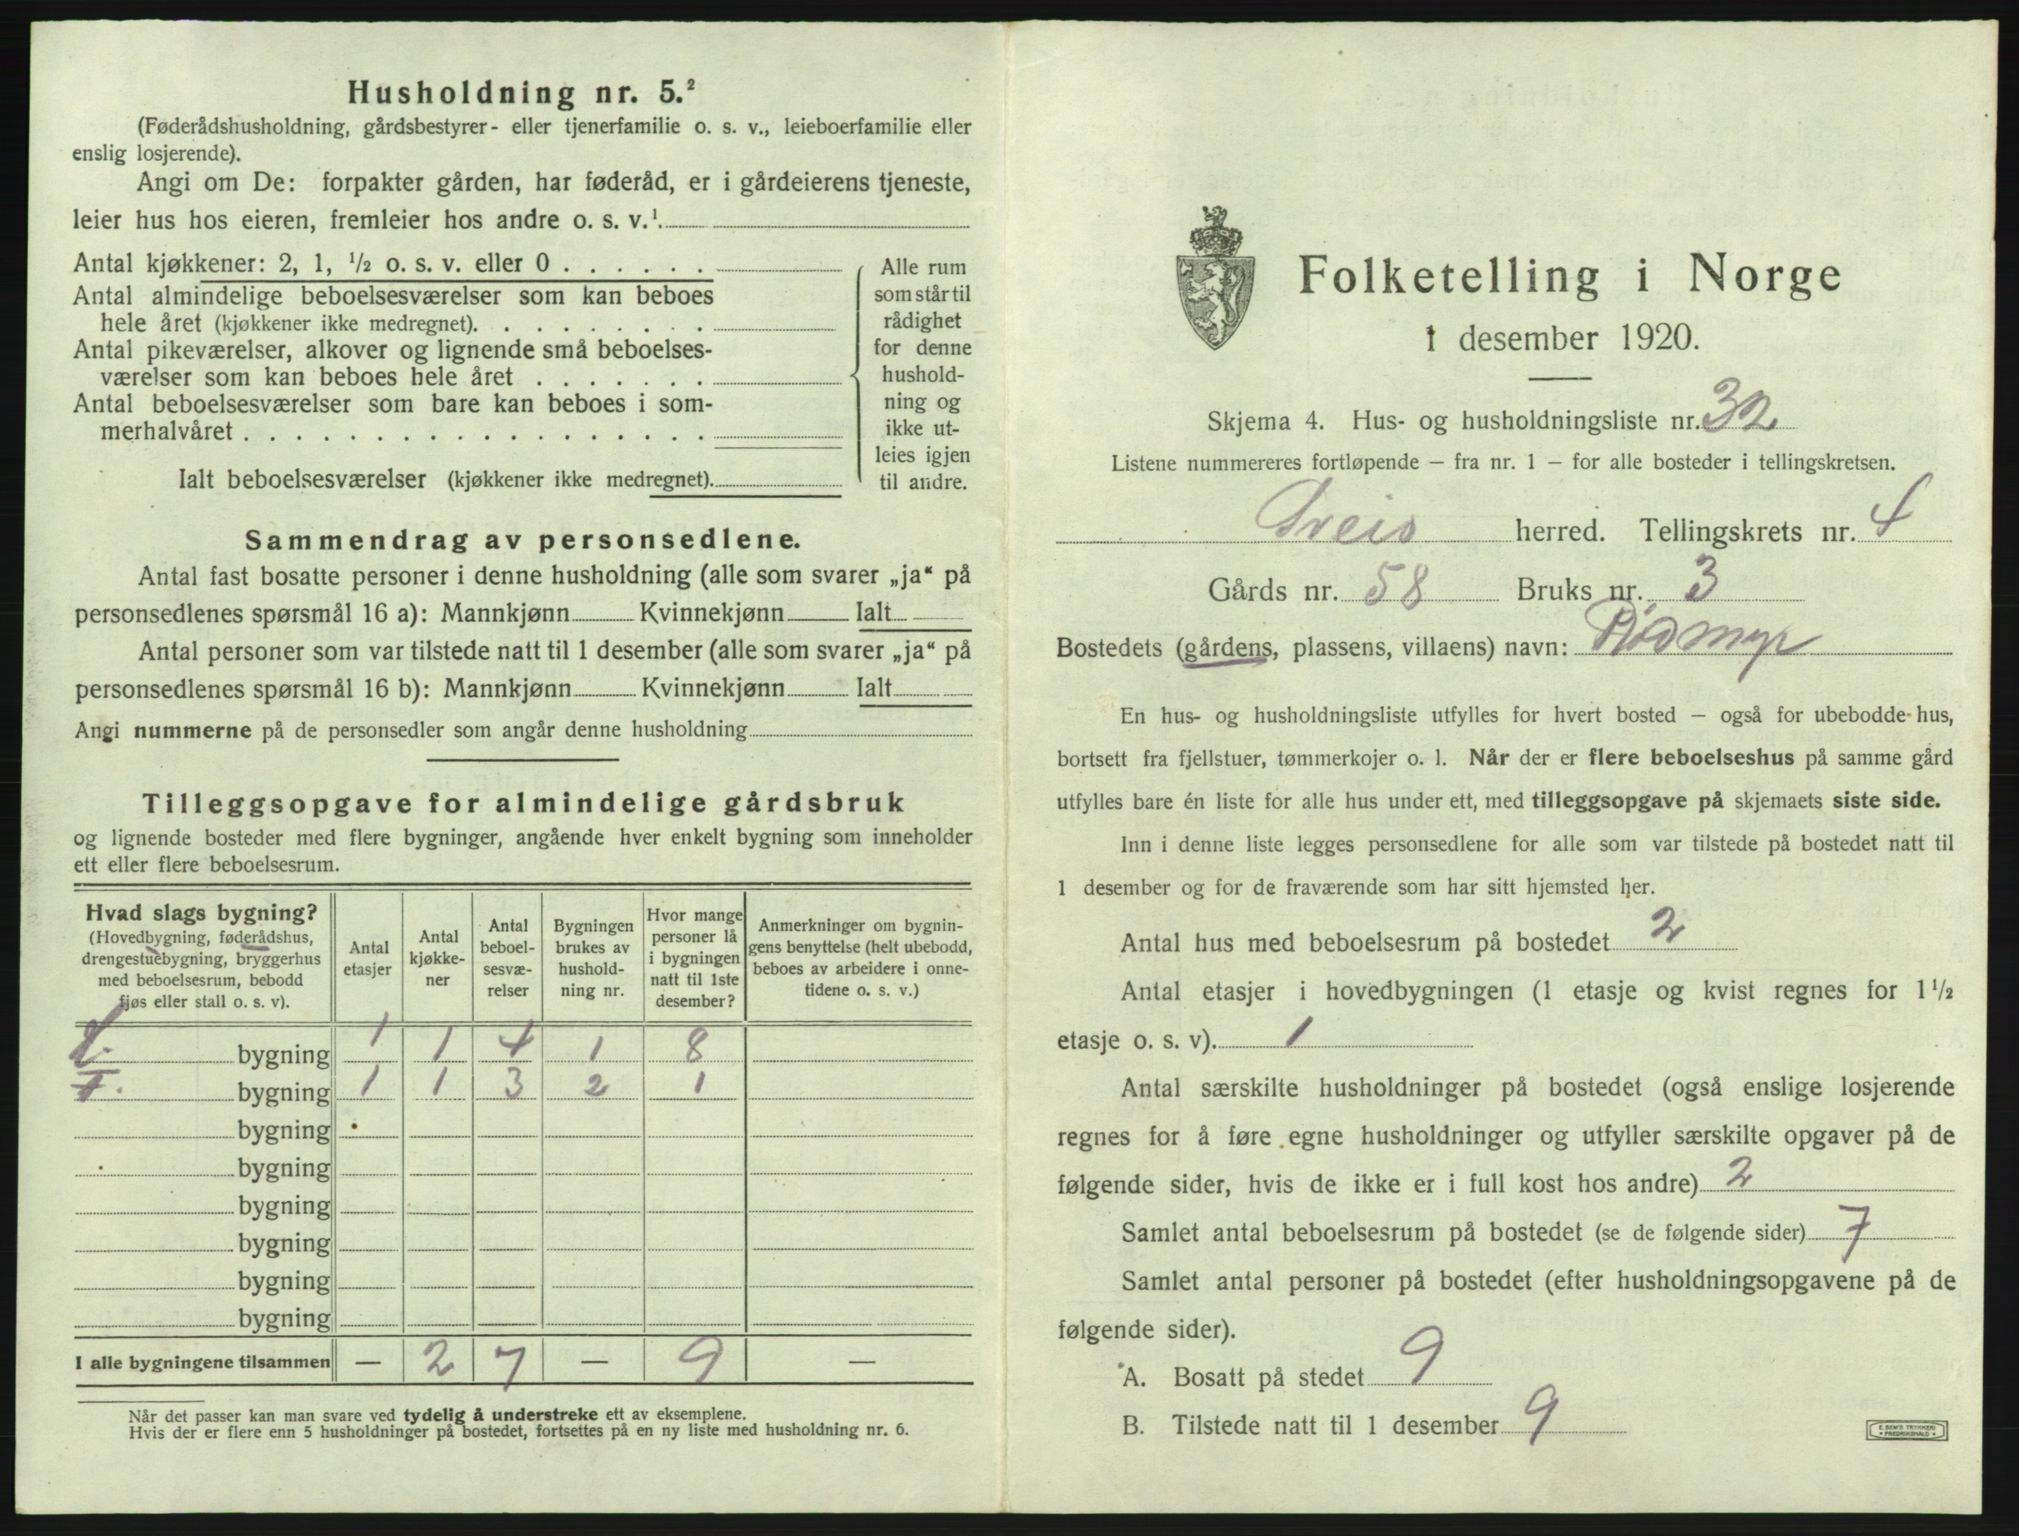 Husholdning nr. 5.²
(Føderådshusholdning, gårdsbestyrer- eller tjenerfamilie o. s. v., leieboerfamilie eller
enslig losjerende).
Angi om De: forpakter gården, har føderåd, er i gårdeierens tjeneste,
leier hus hos eieren, fremleier hos andre o. s. v.¹.
Antal kjøkkener: 2, 1, ½ o. s. v. eller 0 . . . . . .
Antal almindelige beboelsesværelser som kan beboes
hele året (kjøkkener ikke medregnet). . . . . . . . .
Antal pikeværelser, alkover og lignende små beboelses-
værelser som kan beboes hele året . . . . . . .
Antal beboelsesværelser som bare kan beboes i som-
merhalvåret . . . . . . . . . . . . . . . . . .
Ialt beboelsesværelser (kjøkkener ikke medregnet).
Alle rum
som står til
rådighet
for denne
hushold-
ning og
ikke ut-
leies igjen
til andre.
Sammendrag av personsedlene.
Antal fast bosatte personer i denne husholdning (alle som svarer „ja“ på
personsedlenes spørsmål 16 a): Mannkjønn Kvinnekjønn Ialt
Antal personer som var tilstede natt til 1 desember (alle som svarer „ja“ på
personsedlenes spørsmål 16 b): Mannkjønn Kvinnekjønn Ialt
Angi nummerne på de personsedler som angår denne husholdning
Tilleggsopgave for almindelige gårdsbruk
og lignende bosteder med flere bygninger, angående hver enkelt bygning som inneholder
ett eller flere beboelsesrum.
Hvad slags bygning?
(Hovedbygning, føderådshus,
drengestuebygning, bryggerhus
med beboelsesrum, bebodd
fjøs eller stall o. s. v).
Antal
etasjer
Antal
kjøkke-
ner
Antal
beboel-
sesvæ-
relser
Bygningen
brukes av
hushold-
ning nr.
Hvor mange
personer lå
i bygningen
natt til 1ste
desember?
Anmerkninger om bygnin-
gens benyttelse (helt ubebodd,
beboes av arbeidere i onne-
tidene o. s. v.)
bygning 1 1 4 1 8
bygning 1 1 3 2 1
bygning
bygning
bygning
bygning
bygning
bygning
I alle bygningene tilsammen — 2 7 — 9 —
Når det passer kan man svare ved tydelig å understreke ett av eksemplene.
Hvis der er flere enn 5 husholdninger på bostedet, fortsettes på en ny liste med husholdning nr. 6.
Folketelling i Norge
1 desember 1920.
Skjema 4. Hus- og husholdningsliste nr. 32
Listene nummereres fortløpende – fra nr. 1 – for alle bosteder i tellingskretsen.
Sveio herred. Tellingskrets nr. 4
Gårds nr. 58 Bruks nr. 3
Bostedets (gårdens, plassens, villaens) navn: Rødmyr
En hus- og husholdningsliste utfylles for hvert bosted – også for ubebodde hus,
bortsett fra fjellstuer, tømmerkojer o. l. Når der er flere beboelseshus på samme gård
utfylles bare én liste for alle hus under ett, med tilleggsopgave på skjemaets siste side.
Inn i denne liste legges personsedlene for alle som var tilstede på bostedet natt til
1 desember og for de fraværende som har sitt hjemsted her.
Antal hus med beboelsesrum på bostedet 2
Antal etasjer i hovedbygningen (1 etasje og kvist regnes for 1½
etasje o. s. v). 1
Antal særskilte husholdninger på bostedet (også enslige losjerende
regnes for å føre egne husholdninger og utfyller særskilte opgaver på de
følgende sider, hvis de ikke er i full kost hos andre) 2
Samlet antal beboelsesrum på bostedet (se de følgende sider) 7
Samlet antal personer på bostedet (efter husholdningsopgavene på de
følgende sider).
A. Bosatt på stedet 9
B. Tilstede natt til 1 desember 9